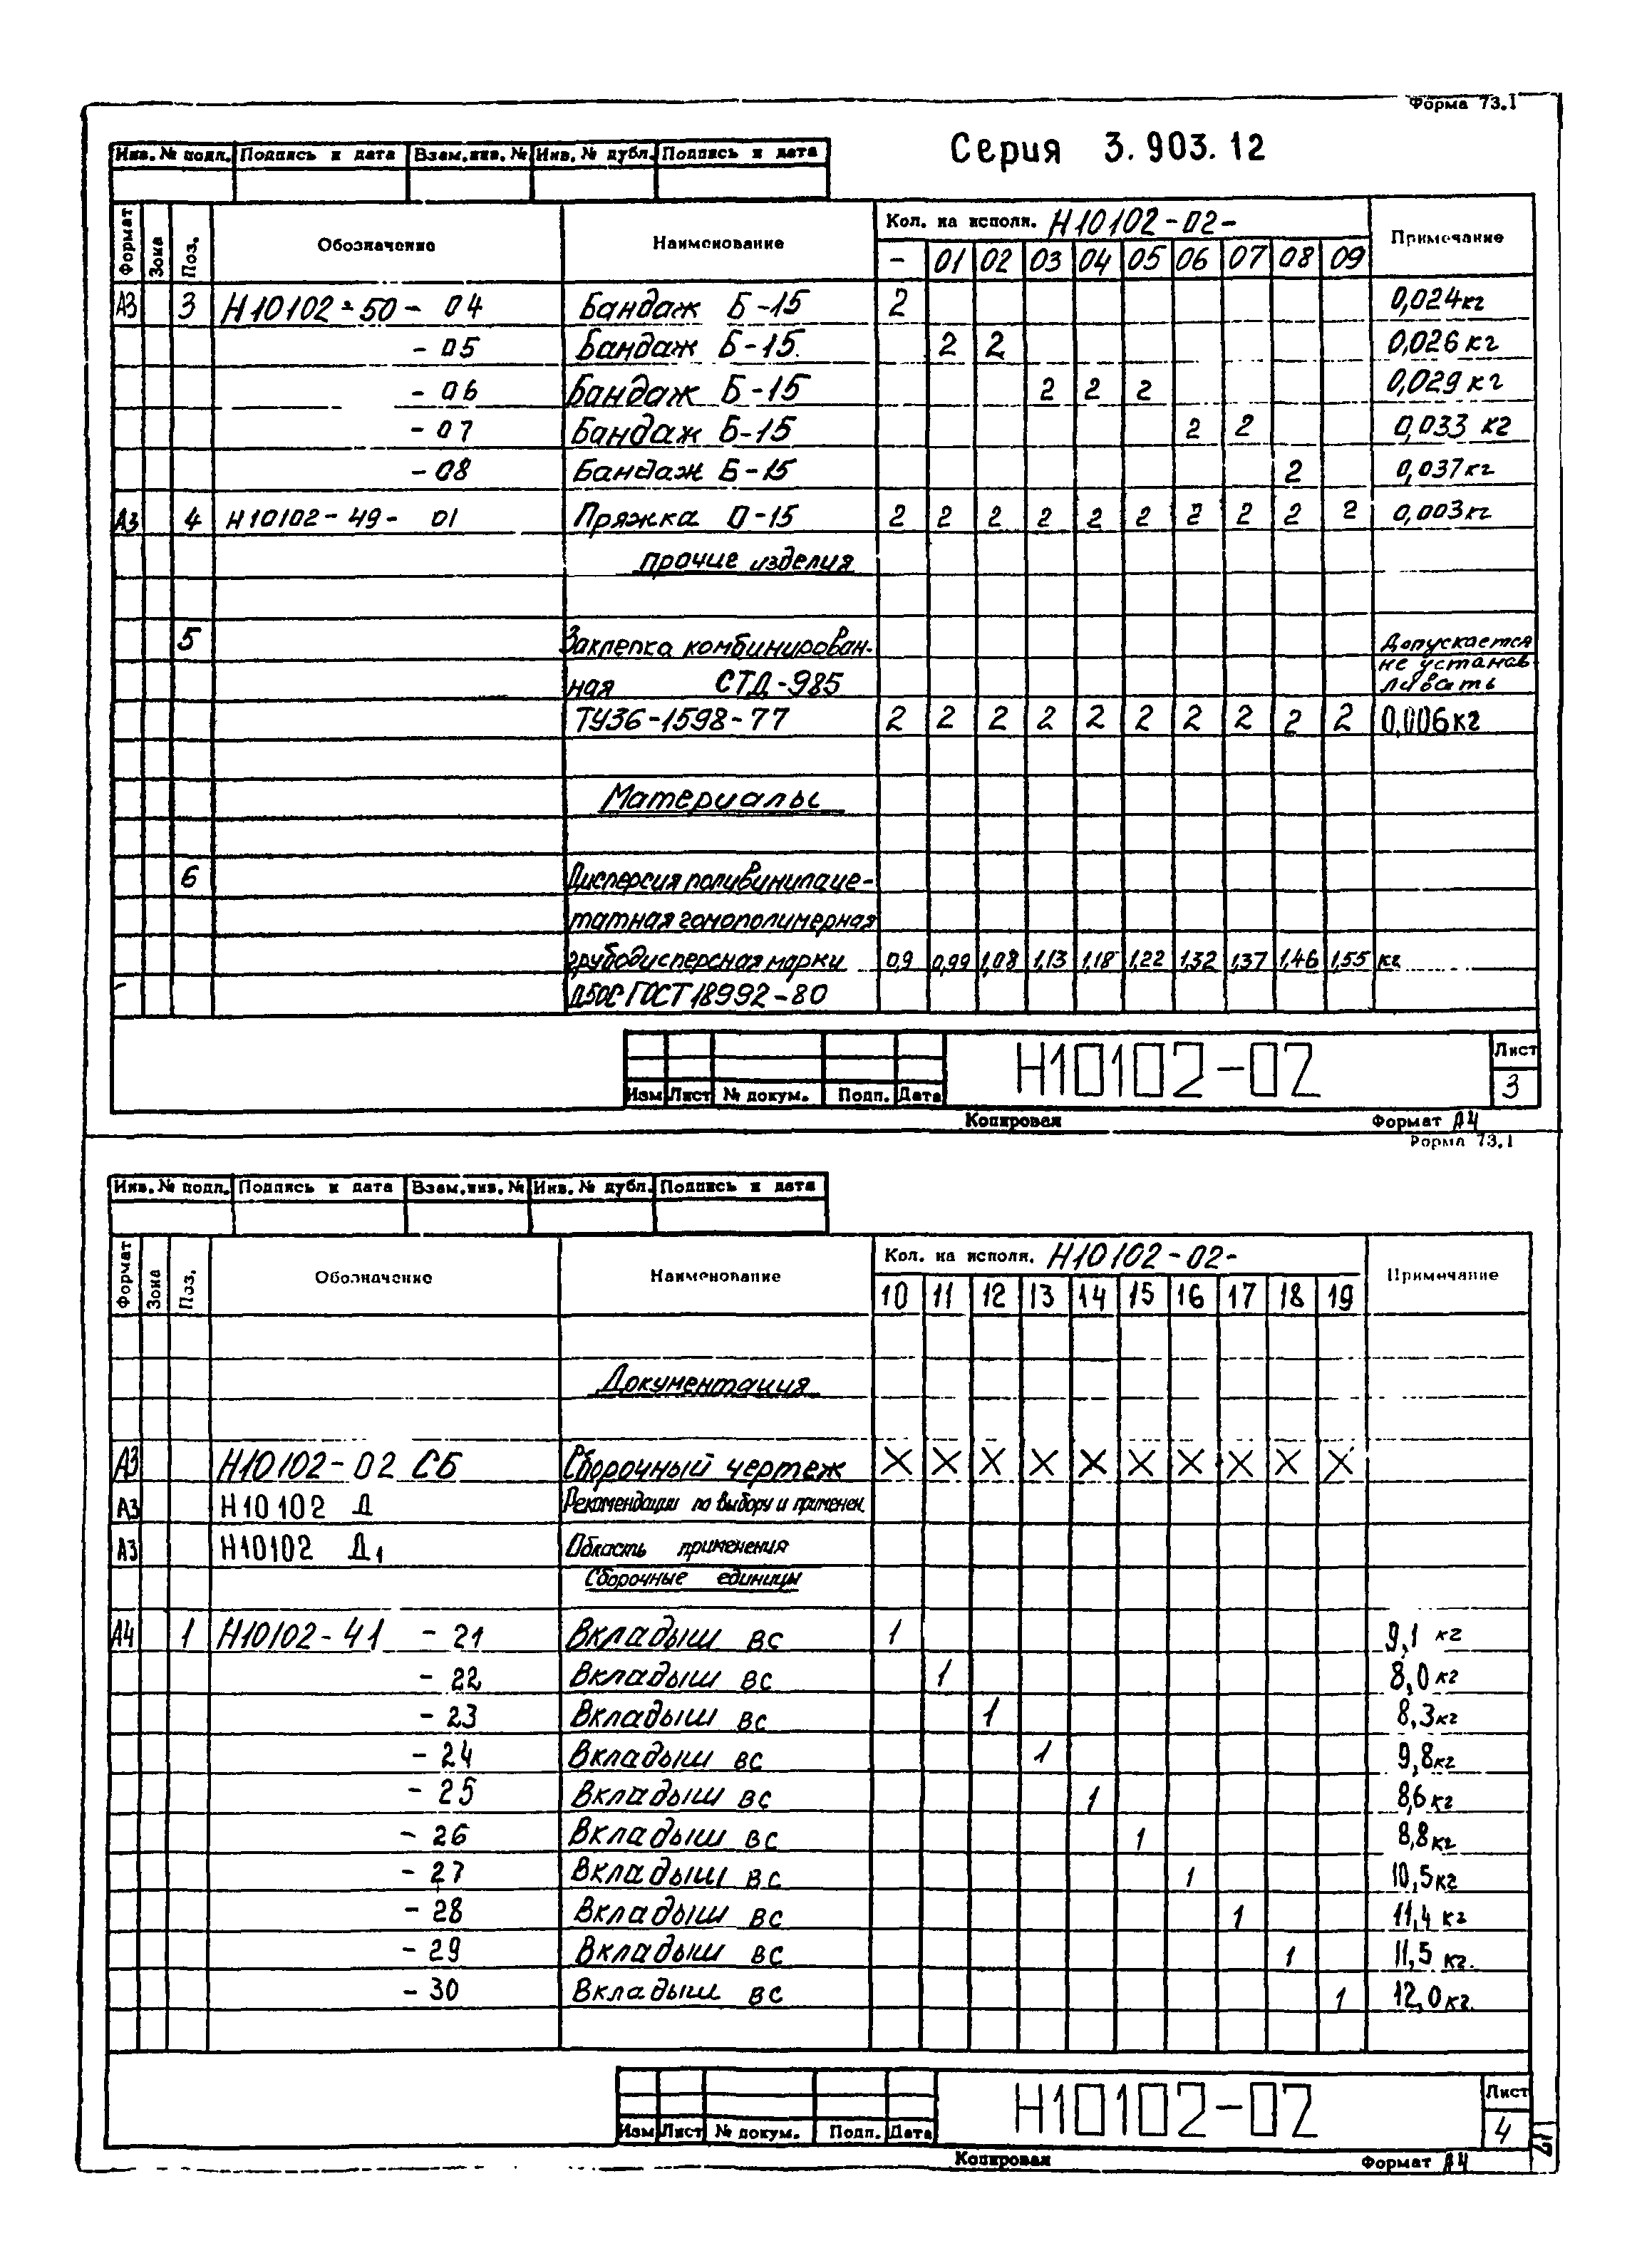 Форма 73.1
Серия 3.903.12
Инв. № подл. Подпись и дата Взам.инв. № Инв. № дубл. Подпись и дата
Формат Зона Поз. Обозначение Наименование Кол. на исполн. Н10102-02- Примечание
- 01 02 03 04 05 06 07 08 09
А3 3 Н10102-50- 04 Бандаж Б-15 2 0,024кг
- 05 Бандаж Б-15 2 2 0,026 кг
- 06 Бандаж Б-15 2 2 2 0,029 кг
- 07 Бандаж Б-15 2 2 0,033 кг
- 08 Бандаж Б-15 2 0,037кг
А3 4 Н10102-49- 01 Пряжка 0-15 2 2 2 2 2 2 2 2 2 2 0,003кг
прочие изделия
5 Заклепка комбинирован- Допускается
не устанав
ная СТД-985 ливать
ТУ36-1598-77 2 2 2 2 2 2 2 2 2 2 0,006кг
Материалы
6 Дисперсия поливинилаце-
татная гомополимерная
грубодисперсная марки 0,9 0,99 1,08 1,13 1,18 1,22 1,32 1,37 1,46 1,55 кг
Д50С ГОСТ 18992-80
Н10102-02 Лист
3
Изм Лист № докум. Подп. Дата
Копировал Формат А4
Форма 73.1
Инв. № подл. Подпись и дата Взам.инв. № Инв. № дубл. Подпись и дата
Формат Зона Поз. Обозначение Наименование Кол. на исполн. Н10102-02- Примечание
10 11 12 13 14 15 16 17 18 19
Документация
А3 Н10102-02 СБ Сборочный чертеж X X X X X X X X X X
А3 Н10102 Д Рекомендации по выбору и применен.
А3 Н10102 Д1 Область применения
Сборочные единицы
А4 1 Н10102-41 - 21 Вкладыш ВС 1 9,1 кг
- 22 Вкладыш ВС 1 8,0 кг
- 23 Вкладыш ВС 1 8,3кг
- 24 Вкладыш ВС 1 9,8кг
- 25 Вкладыш ВС 1 8,6 кг
- 26 Вкладыш ВС 1 8,8кг
- 27 Вкладыш ВС 1 10,5кг
- 28 Вкладыш ВС 1 11,4 кг
- 29 Вкладыш ВС 1 11,5 кг.
- 30 Вкладыш ВС 1 12,0кг.
Н10102-02 Лист
4
Изм Лист № докум. Подп. Дата
Копировал Формат А4